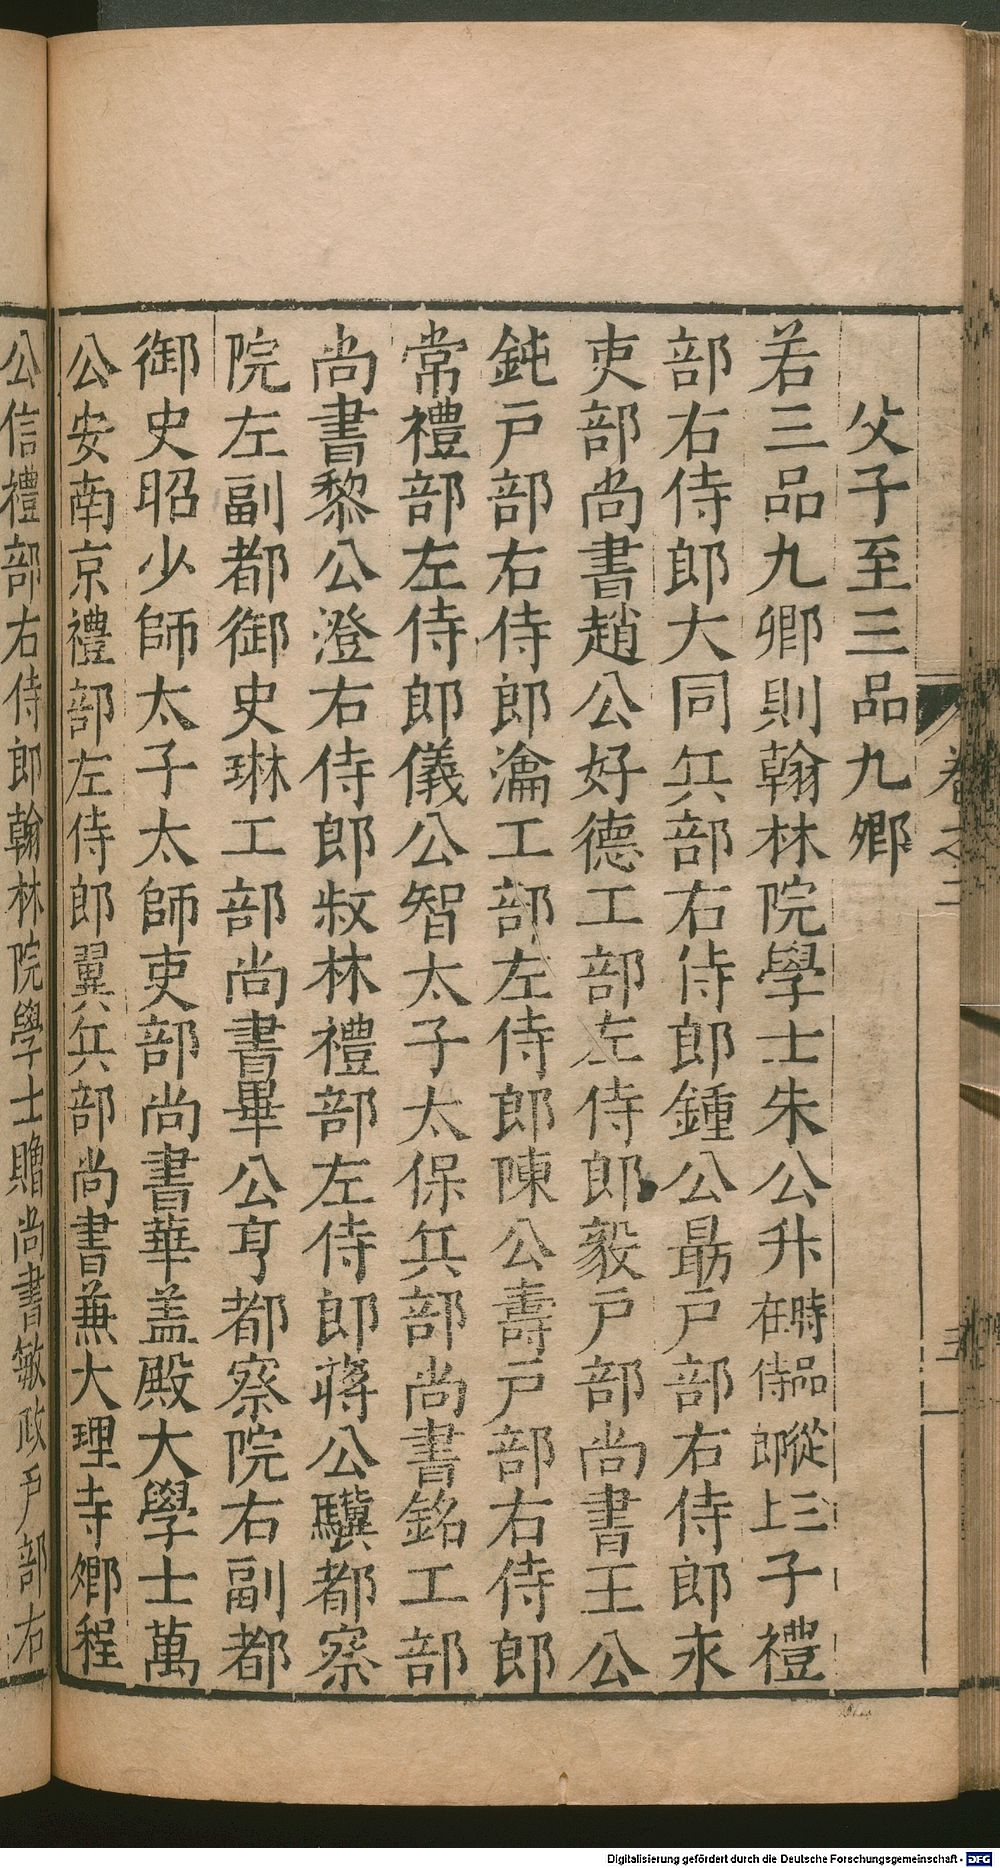 卷之二
父子至三品九卿
若三品九卿則翰林院學士朱公升時品從三在侍郎上子禮
部右侍郎大同兵部右侍郎鍾公勗户部右侍郎永
吏部尚書趙公好德工部左侍郎毅户部尚書王公
鈍户部右侍郎瀹工部左侍郎陳公壽户部右侍郎
常禮部左侍郎儀公智太子太保兵部尚書銘工部
尚書黎公澄右侍郎叔林禮部左侍郎蔣公驥都察
院左副都御史琳工部尚書畢公亨都察院右副都
御史昭少師太子太師吏部尚書華盖殿大學士萬
公安南京禮部左侍郎翼兵部尚書蕪大理寺卿程
公信禮部右侍郎翰林院學士贈尚書敏政户部右
Digitalisierung gefördert durch die Deutsche Forschungsgemeinschaft - DFG